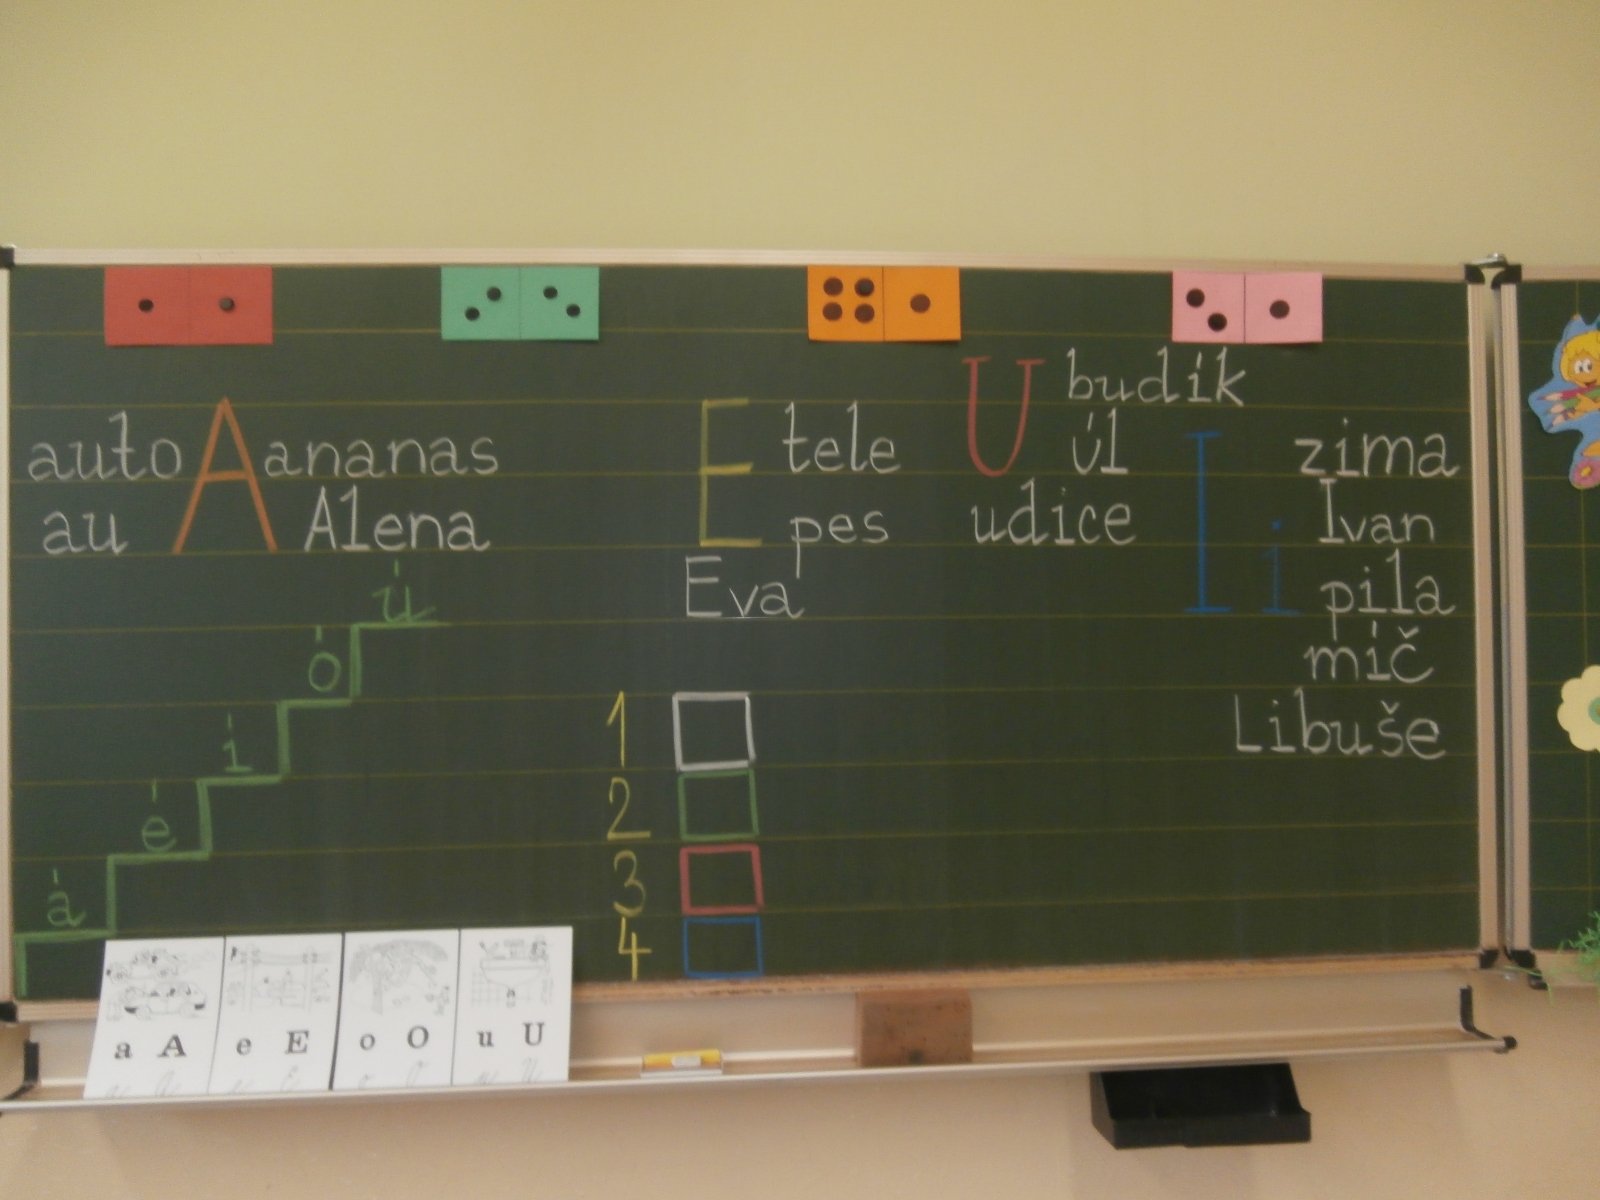 auto A ananas
au Alena
E tele
pes
Eva
U budík
úl
udice
I i zima
Ivan
pila
míč
Libuše
ú
ó
í
é
á
1
2
3
4
a A e E o O u U